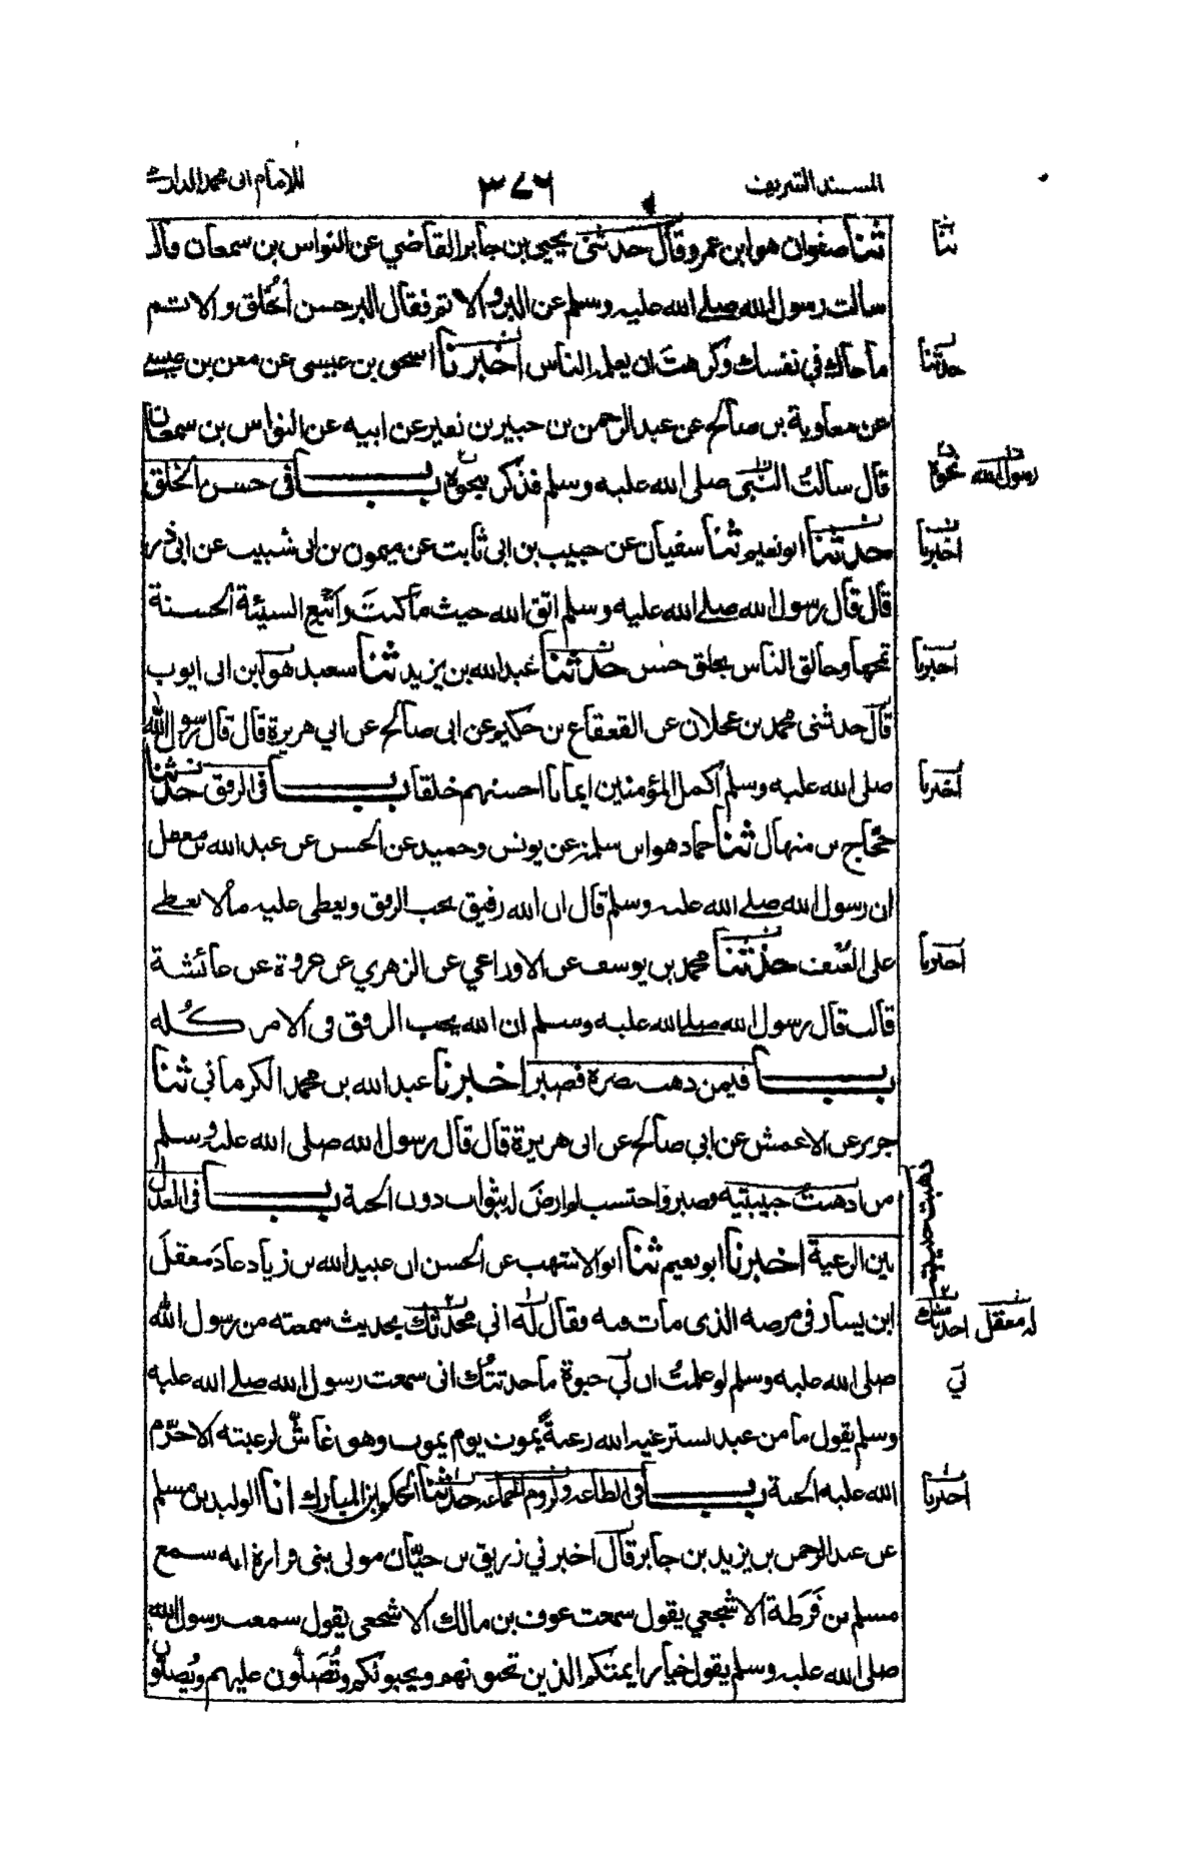 المسند الشريف
٣٧٦
للامام ابى محمد الدارمى
ثنا صفوان هو ابن عمرو قال حدثنى يحيى بن جابر القاضي عن النواس بن سمعان قال
سالت رسول الله صلے الله عليه وسلم عن البر والاثم فقال البر حسن الخُلق والاثم
ما حاك في نفسك وكرهت ان يعلمه الناس اخبرنا اسحق بن عيسى عن معن بن عيسى
عن معاوية بن صالح عن عبد الرحمن بن جبير بن نفير عن ابيه عن النواس بن سمعان
قال سالتُ النبى صلى الله عليه وسلم فذكر نحوه باب فى حسن الخلق
حدثنا ابو نعيم ثنا سفيان عن حبيب بن ابى ثابت عن ميمون بن ابى شبيب عن ابى ذر
قال قال رسول الله صلے الله عليه وسلم اتق الله حيث ما كنتَ واتبع السيئة الحسنة
تمحها وخالق الناس بخلق حسن حدثنا عبد الله بن يزيد ثنا سعيد هو ابن ابى ايوب
قال حدثنى محمد بن عجلان عن القعقاع بن حكيم عن ابى صالح عن ابي هريرة قال قال رسول الله
صلى الله عليه وسلم اكمل المؤمنين ايمانا احسنهم خلقا باب فى الرفق حدثنا
حجّاج بن منهال ثنا حماد هو ابن سلمة عن يونس وحميد عن الحسن عن عبد الله بن مغفل
ان رسول الله صلے الله عليه وسلم قال ان الله رفيق يحب الرفق ويعطى عليه ما لا يعطے
على العُنف حدثنا محمد بن يوسف عن الاوزاعي عن الزهري عن عروة عن عائشة
قالت قال رسول الله صلے الله عليه وسلم ان الله يحب الرفق فى الامر كُله
باب فيمن ذهب بصره فصبر اخبرنا عبد الله بن محمد الكرماني ثنا
جرير عن الاعمش عن ابي صالح عن ابى هريرة قال قال رسول الله صلى الله عليه وسلم
من اذهبتُ حبيبتيه وصبر واحتسب لم ارضَ له بثواب دون الجنة باب فى العدل
بين الرعية اخبرنا ابو نعيم ثنا ابو الاشهب عن الحسن ان عبيد الله بن زياد عاد معقلَ
ابن يسار فى مرضه الذى مات فيه وقال له اني محدثك بحديث سمعته من رسول الله
صلى الله عليه وسلم لو علمتُ ان لي حيوة ما حدثتُك انى سمعت رسول الله صلے الله عليه
وسلم يقول ما من عبد يسترعيه الله رعيةً يموت يوم يموت وهو غاشٌ لرعيته الا حرّم
الله عليه الجنة باب فى الطاعة ولزوم الجماعة حدثنا الحكم بن المبارك انا الوليد بن مسلم
عن عبد الرحمن بن يزيد بن جابر قال اخبرني زريق بن حيّان مولى بنى فزارة انه سمع
مسلم بن قَرَظة الاشجعي يقول سمعت عوف بن مالك الاشجعى يقول سمعت رسول الله
صلى الله عليه وسلم يقول خيار ايمتكم الذين تحبونهم ويحبونكم وتُصَلّون عليهم ويُصلون
ثنا
حدثنا
رسول الله نحوه
اخبرنا
اخبرنا
اخبرنا
اخبرنا
ذهبت حبيبتيه
له معقل
لي
اخبرنا